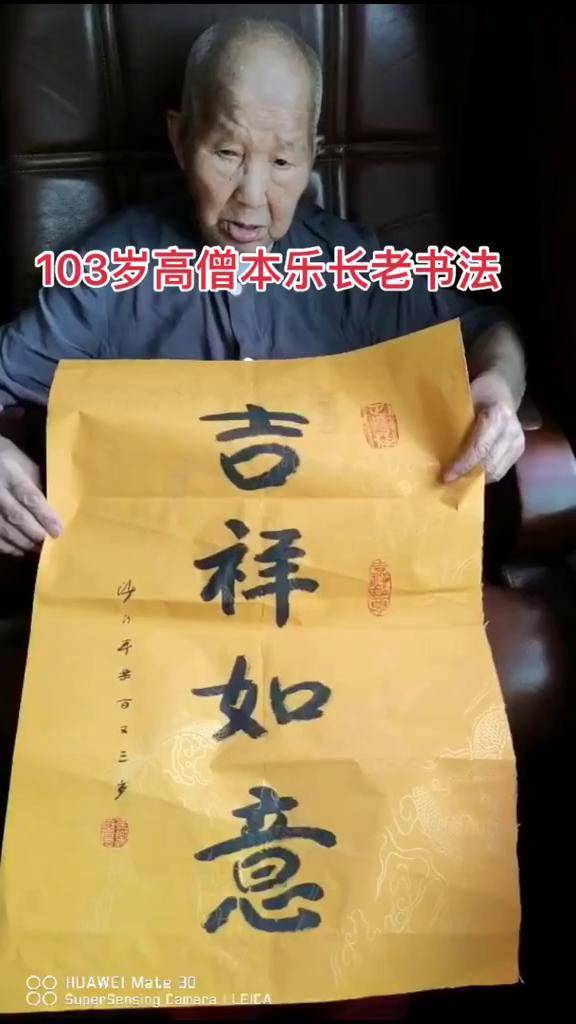 103岁高僧本乐长老书法
吉祥如意
沙门本乐百又三岁
HUAWEI Mate 30
SuperSensing Camera | LEICA